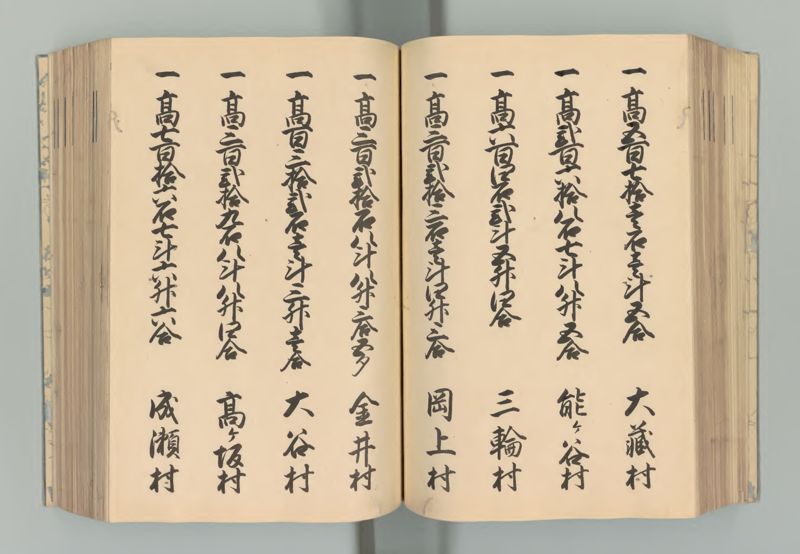 一 高五百七拾壱石壱斗五合 大藏村
一 高弐百六拾八石七斗八升五合 能ヶ谷村
一 高六百四石弐斗五升四合 三輪村
一 高三百弐拾三石壱斗四升三合 岡上村
一 高三百弐拾石八斗八升三合五夕 金井村
一 高百三拾弐石壱斗三升壱合 大谷村
一 高三百弐拾九石八斗八升四合 高ヶ坂村
一 高七百拾六石七斗六升六合 成瀬村